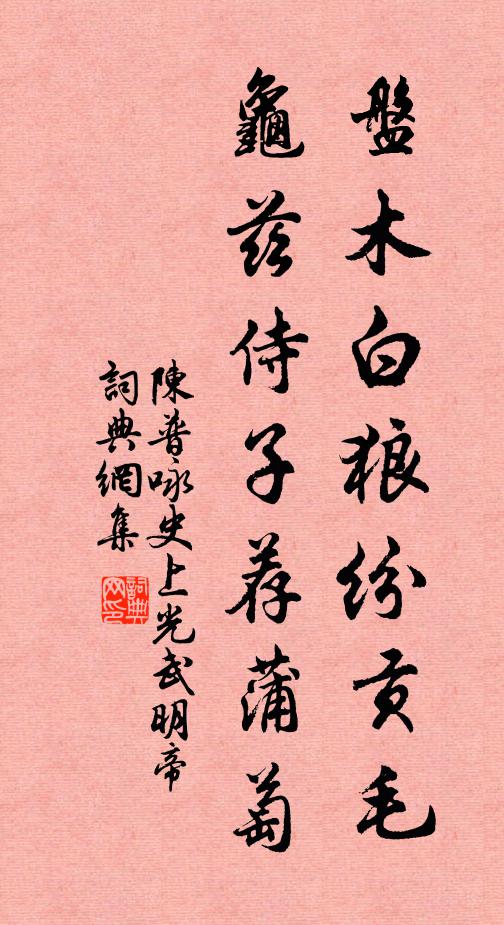 盤木白狼紛貢毛
龜茲侍子荐蒲萄
陳普咏史上光武明帝
詞典網集
詞典网印